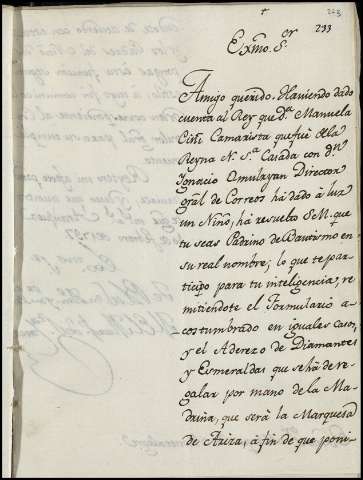 +
233
Exmo. Sor
Amigo querido. Haviendo dado
cuenta al Rey que d.ª Manuela
Camarista que fué de la
Reyna N. S.ª Casada con d.n
Ignacio Omulryan Director
gral de Correos ha dado à luz
un Niño, há resuelto S. M. que
tu seas Padrino de Bautismo en
su real nombre; lo que te par-
ticipo para tu inteligencia, re-
mitiendote el Formulario a-
costumbrado en iguales casos,
y el Aderezo de Diamantes
y Esmeraldas que se hà de re-
galar por mano de la Ma-
drina, que será la Marquesa
de Ariza, à fin de que poni-